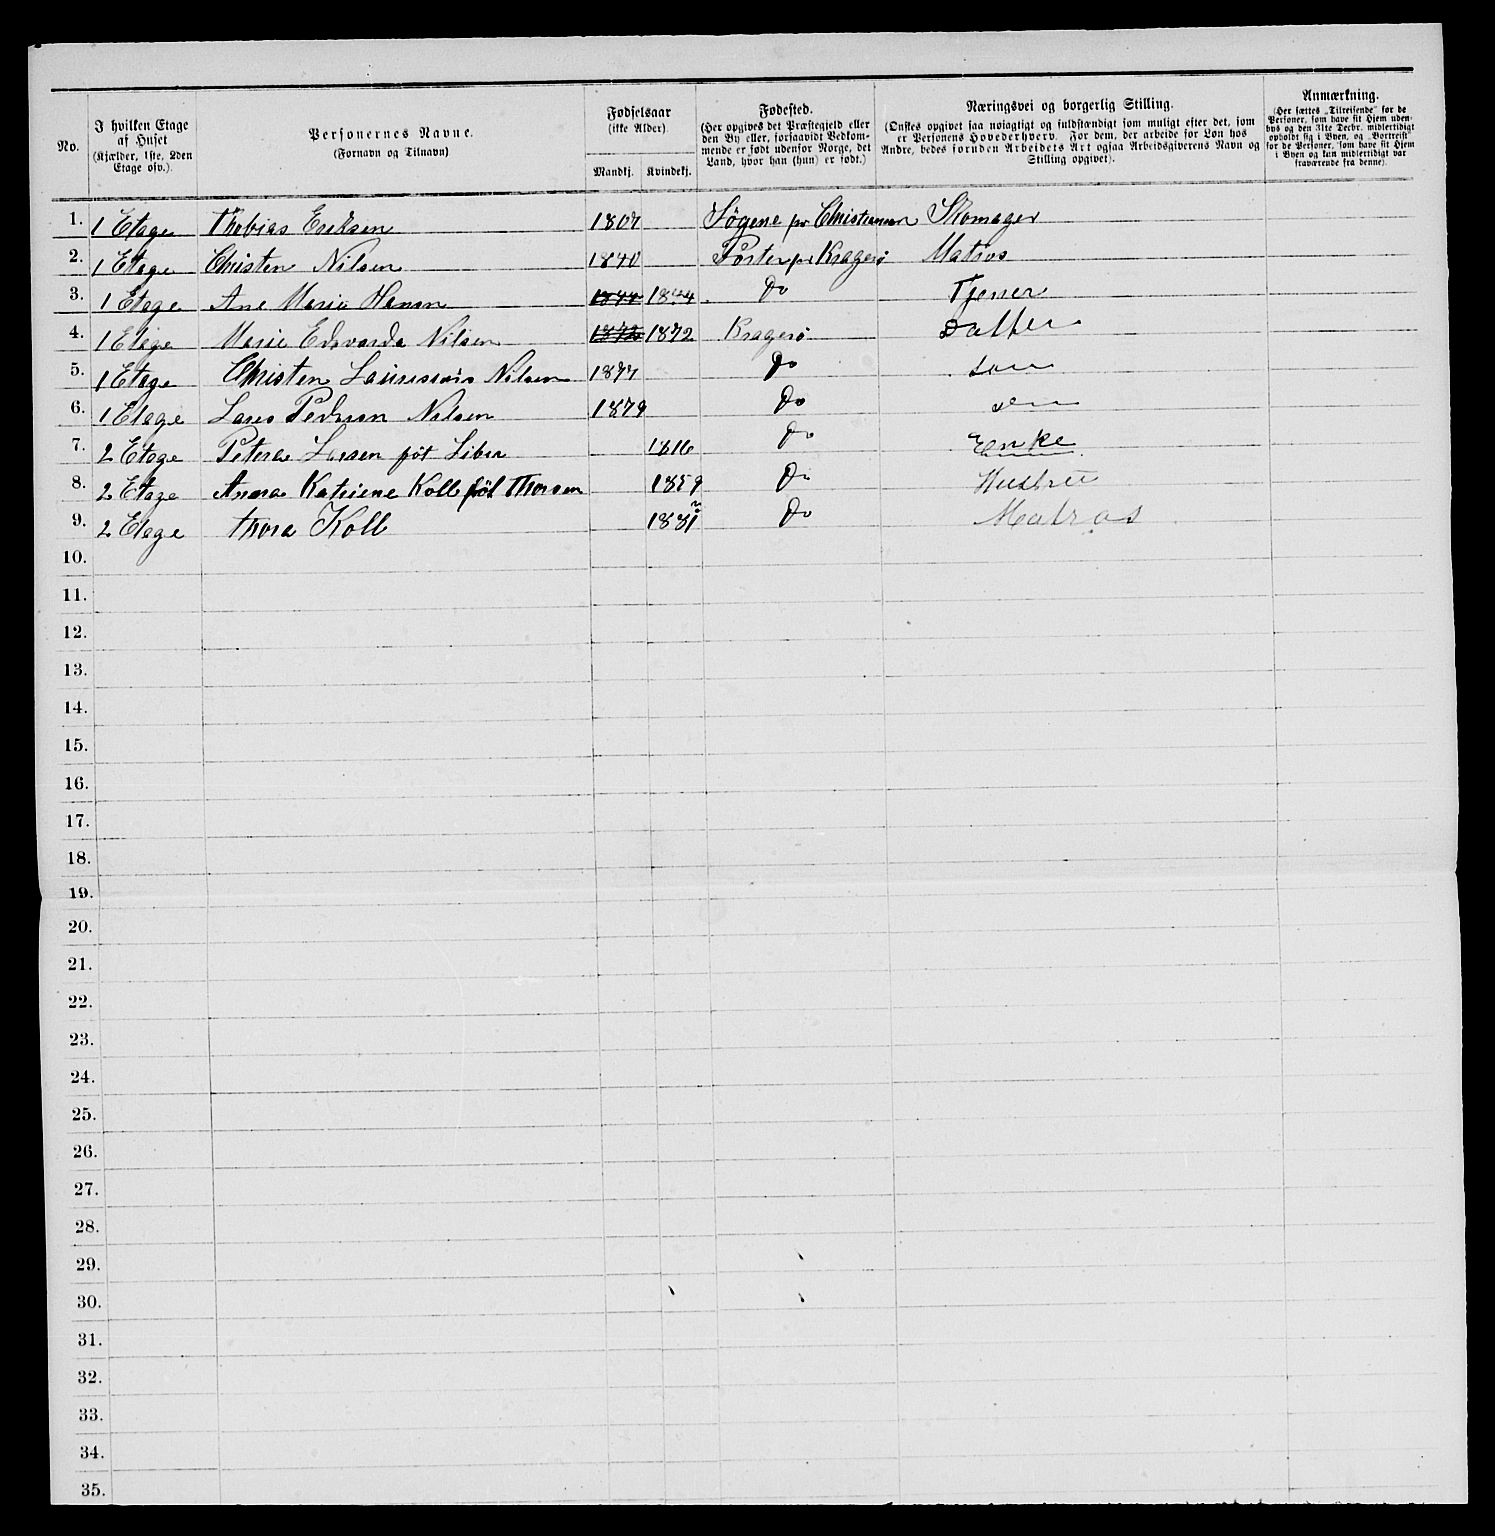 No.
I hvilken Etage af Huset (Kjælder, 1ste, 2den Etage osv.).
Personernes Navne. (Fornavn og Tilnavn)
Fødselsaar (ikke Alder).
Mandkj. Kvindekj.
Fødested. (Her opgives det Præstegjeld eller den By eller, forsaavidt Vedkommende er født udenfor Norge, det Land, hvor han (hun) er født.)
Næringsvei og borgerlig Stilling. (Ønskes opgivet saa nøiagtigt og fuldstændigt som muligt efter det, som er Personens Hovederhverv. For dem, der arbeide for Løn hos Andre, bedes foruden Arbeidets Art ogsaa Arbeidsgiverens Navn og Stilling opgivet).
Anmærkning. (Her sættes „Tilreisende" for de Personer, som have sit Hjem udenbys og den 31te Decbr. midlertidigt opholdt sig i Byen, og „Bortreist" for de Personer, som have sit Hjem i Byen og kun midlertidigt var fraværende fra denne).
1. 1 Etage Thobias Eriksen 1807 Søgene pr Christiansan Skomager
2. 1 Etage Christen Nilsen 1840 pr Kragerö Matros
3. 1 Etage Ane Marie Hansen 1844 1844 Do Tjener
4. 1 Etage Marie Edvarda Nilsen 1872 1872 Kragerö Datter
5. 1 Etage Christen Nilsen 1877 Do Søn
6. 1 Etage Lars Pedersen Nilsen 1879 Do søn
7. 2 Etage Petera föt 1816 Do Enke
8. 2 Etage Anna Katriene Koll föt Thorsen 1859 Do Hustru
9. 2 Etage Thora Koll 1881 Do Matros
10.
11.
12.
13.
14.
15.
16.
17.
18.
19.
20.
21.
22.
23.
24.
25.
26.
27.
28.
29.
30.
31.
32.
33.
34.
35.